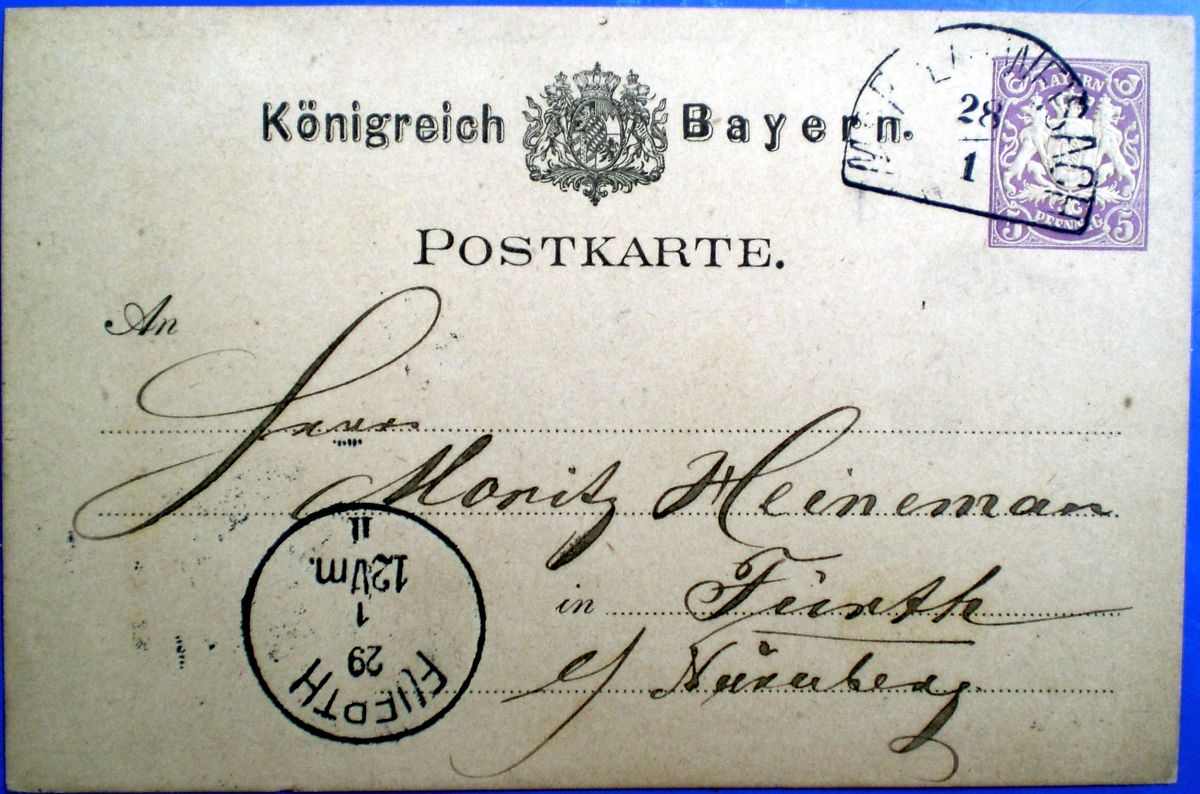 Königreich Bayern.
28
1
BAYERN
5 PFENNIG 5
POSTKARTE.
An
Herrn
Moritz Heineman
in Fürth
Nürnberg
FUERTH
29
1
12Vm.
II